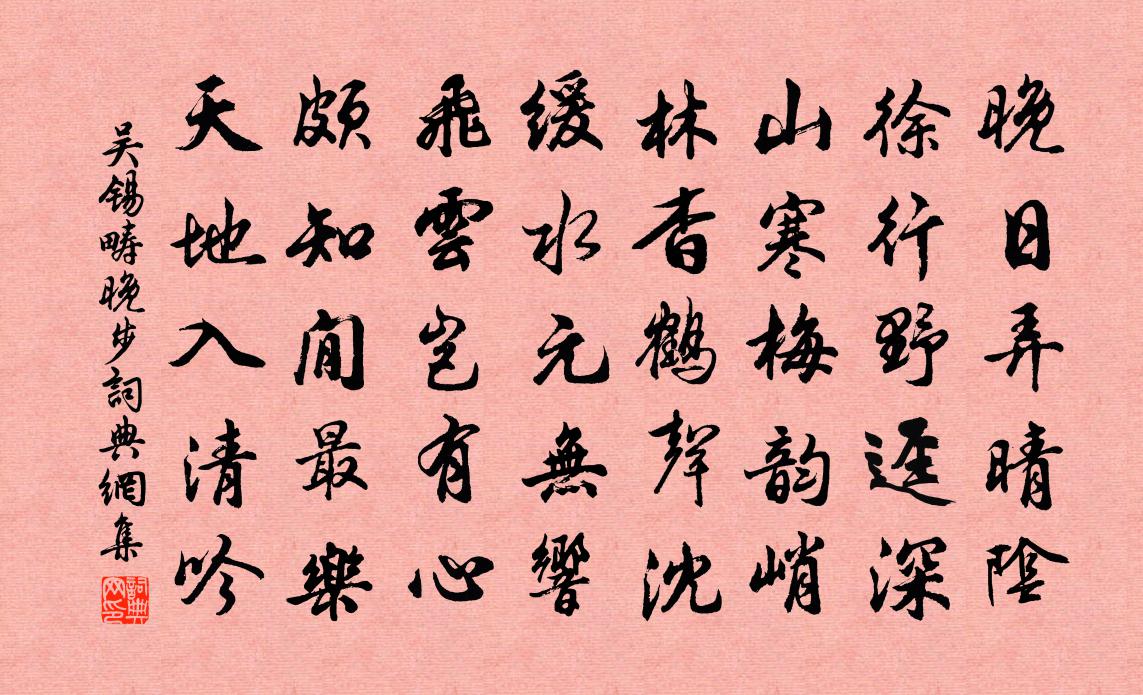 晚日弄晴陰
徐行野逕深
山寒梅韵峭
林杳鶴聲沈
緩水元無響
飛雲豈有心
頗知閒最樂
天地入清吟
吳錫疇晚步詞典網集
詞典网印